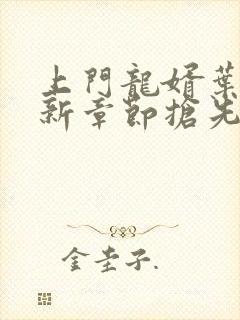 上門龍婿葉
新章節搶先
金圭子.